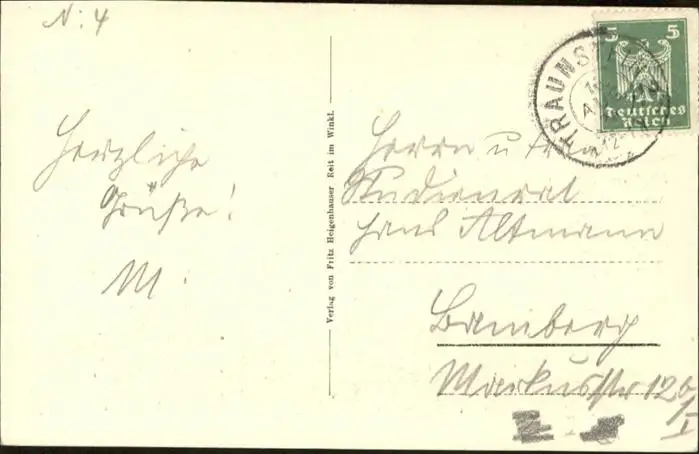 N. 4
Herzliche
Grüße!
M.
Verlag von Fritz Heigenhauser Reit im Winkl.
5 5
Deutsches
Reich
TRAUNST
12-
Herrn u Frau
Studienrat
Hans Altmann
Bamberg
Markusstr 12b/I